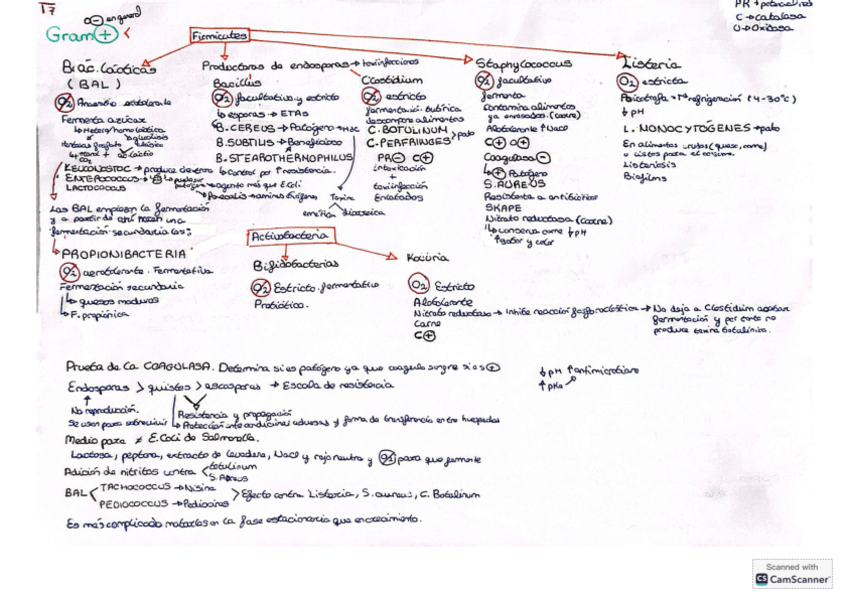 T7
O⊖ en general
Gram ⊕
Firmicutes
PR → peroxidasa
C → Catalasa
O → Oxidasa
Bac. Lácticas
(BAL)
O2 Anaerobio aerotolerante
Fermenta azúcar
↳ Hetero/homoláctica
KEUCONOSTOC → produce dextrano
ENTEROCOCCUS
↳ agente más que E.Coli
↳ faecalis → aminas biógenas
LACTOCOCCUS
Las BAL emplean la fermentación
y a partir de ahí hacen una
fermentación secundaria las:
PROPIONIBACTERIA
O2 aerotolerante. Fermentativa
Fermentación secundaria
↳ quesos maduros
↳ F. propiónica
Productoras de endosporas → toxiinfecciones
Bacillus
O2 facultativo y estricto
↳ esporas → ETAS
B. CEREUS → Patógeno
B. SUBTILIS → Beneficioso
B. STEAROTHERMOPHILUS
↳ Control por ↑ resistencia.
Toxina
emética
diarreica
Clostidium
O2 estricto
fermentación butírica
descompone alimentos
C. BOTULINUM
C. PERFRINGES
pato
PR ⊖ C ⊕
intoxicación
+
toxiinfección
Enlatados
Staphylococcus
O2 facultativo
fermenta
Contamina alimentos
ya envasados (carne)
Alotolerante ↑ NaCl
C ⊕ O ⊕
Coagulasa ⊖
↳ ⊕ Patógeno
S. AUREUS
Resistente a antibióticos
SKAPE
Nitrato reductasa (carne)
↳ conserva carne ↓ pH
↑ sabor y color
Listeria
O2 estricta
Psicotrofa → Tª refrigeración (4-30ºC)
↓ pH
L. MONOCYTÓGENES → pato
En alimentos crudos (queso, carne)
o listos para el consumo.
Listeriosis
Biofilms
Activobacteria
Bifidobacterias
O2 Estricto. fermentativo
Probiótico.
Kocuria
O2 Estricto
Alotolerante
Nitrato reductasa → Inhibe reacción fosforoclástica → No deja a Clostidium acabar
fermentación y por tanto no
produce toxina botulínica.
Carne
C ⊕
Prueba de la COAGULASA. Determina si es patógeno ya que coagula sangre si es ⊕
Endosporas > quistes > ascosporas → Escala de resistencia
No reproducción.
Se usan para sobrevivir
Resistencia y propagación
↳ Protección ante condiciones adversas y forma de transferencia entre huéspedes
↓ pH ↑ antimicrobiano
↑ pKa
Medio para ≠ E.Coli de Salmonella.
Lactosa, peptona, extracto de levadura, NaCl y rojo neutro y O2 para que fermente
Adición de nitritos contra < botulinum
S. Aureus
BAL < TACHOCOCCUS → Nisina
PEDIOCOCCUS → Pediocinas
> Efecto contra Listeria, S. aureus, C. Botulinum
Es más complicado matarlas en la fase estacionaria que en crecimiento.
Scanned with
CS CamScanner